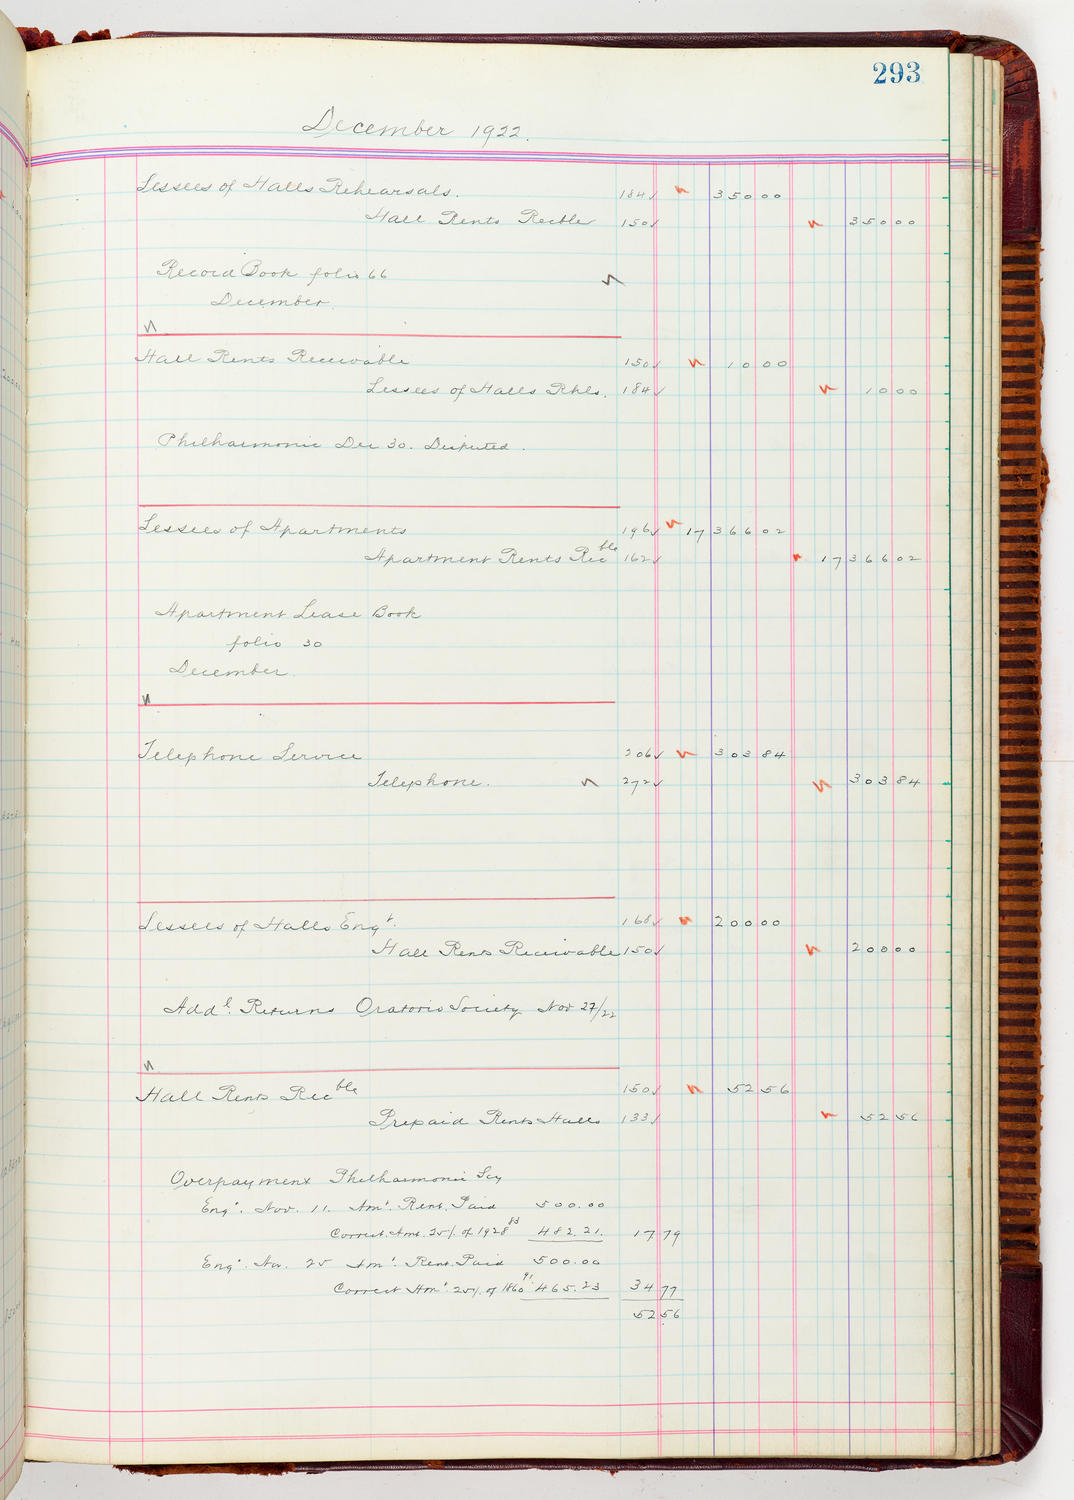 293
December 1922.
Lessees of Halls Rehearsals. 184 350 00
Hall Rents Recble 150 350 00
Record Book folio 66
December.
Hall Rents Receivable 150 10 00
Lessees of Halls Rhls. 184 10 00
Philharmonic Dec 30. Disputed.
Lessees of Apartments 196 17 366 02
Apartment Rents Recble 162 17 366 02
Apartment Lease Book
folio 30
December.
Telephone Service 206 303 84
Telephone. 272 303 84
Lessees of Halls Engt. 168 200 00
Hall Rents Receivable 150 200 00
Addl. Returns Oratorio Society Nov 27/22
Hall Rents Recble 150 52 56
Prepaid Rents Halls 133 52 56
Overpayment Philharmonic Socy
Engt. Nov. 11. Amt. Rent. Paid 500.00
Correct. Amt. 25% of 1928 83 482.21. 17 79
Engt. Nov. 25 Amt. Rent. Paid 500.00
Correct Amt. 25% of 1860 91 465.23 34 77
52 56